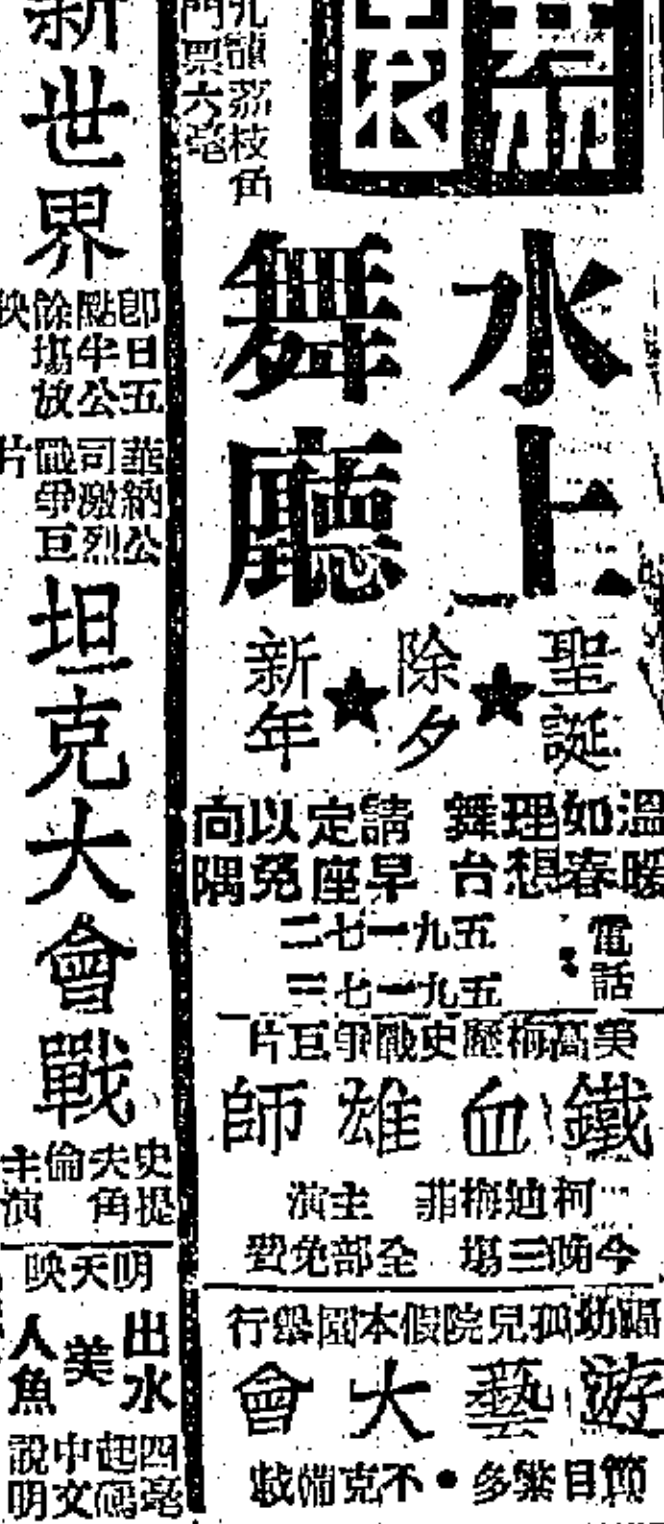 荔園
九龍荔枝角
門票六毫
水上
舞廳
聖誕★除夕★新年
溫暖如春
理想舞台
請早定座
以免向隅
電話：五九一七二
五九一七三
美高梅歷史戰爭巨片
鐵血雄師
柯迪梅菲 主演
今晚三塲 全部免費
幼孤兒院假本園舉行
游藝大會
節目繁多●不克備載
新世界
即日五
點半公
餘塲放
映
華納公
司激烈
戰爭巨
片
坦克大會戰
史提
夫角
倫
主演
明天映
出水
美
人魚
四毫
起碼
中文
說明